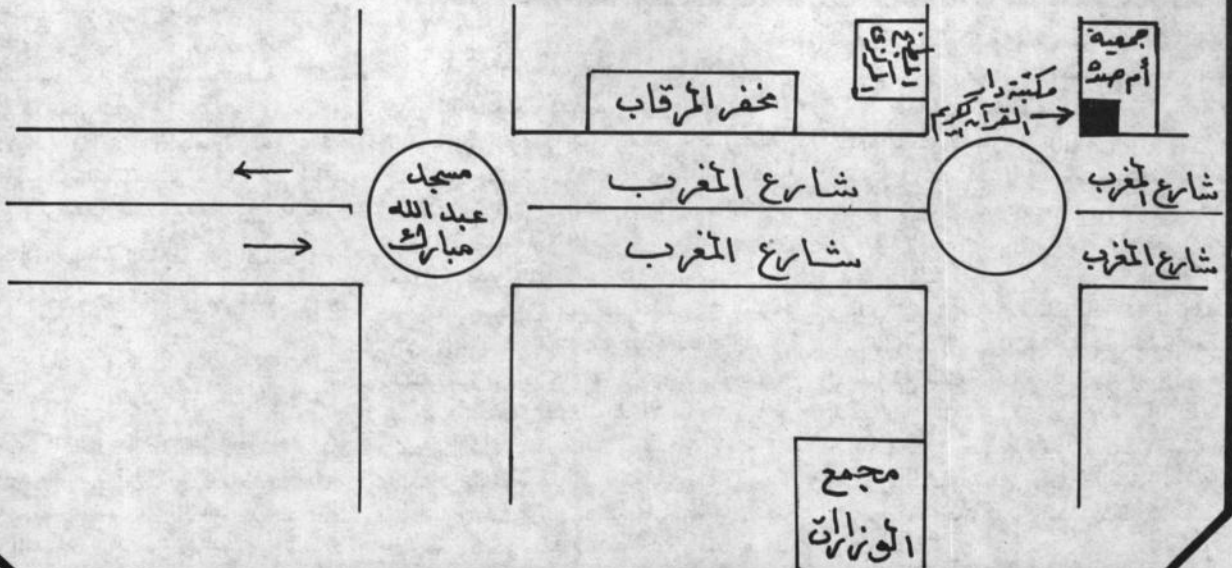 جمعية
أم صدة
مكتبة دار
القرآن الكريم
مخفر المرقاب
مسجد
عبد الله
مبارك
شارع المغرب
شارع المغرب
شارع المغرب
شارع المغرب
مجمع
الوزارات